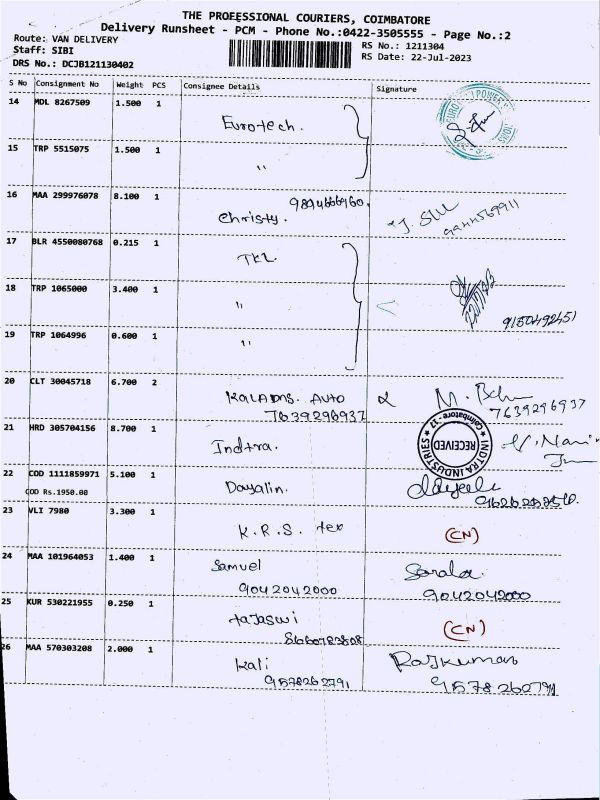 THE PROFESSIONAL COURIERS, COIMBATORE
Delivery Runsheet - PCM - Phone No.:0422-3505555 - Page No.:2
Route: VAN DELIVERY
RS No.: 1211304
Staff: SIBI
RS Date: 22-Jul-2023
DRS No.: DCJB121130402
S No Consignment No Weight PCS Consignee Details Signature
14 MDL 8267509 1.500 1
Eurotech.
15 TRP 5515075 1.500 1
"
16 MAA 299976078 8.100 1
Christy.
9444569911
17 BLR 4550080768 0.215 1
TKL
18 TRP 1065000 3.400 1
"
9150492451
19 TRP 1064996 0.600 1
"
20 CLT 30045718 6.700 2
KALADMS. AUTO
7639296937
7639296937
21 HRD 305704156 8.700 1
Indtra.
INDTRA INDUSTRIES
Coimbatore - 17
RECEIVED
22 COD 1111859971 5.100 1
COD Rs.1950.00
Dayalin.
23 VLI 7980 3.300 1
K.R.S. tex
(CN)
24 MAA 101964053 1.400 1
Samuel Sarala.
9042042000 9042042000
25 KUR 530221955 0.250 1
tajaswi
(CN)
26 MAA 570303208 2.000 1
Kali Rajkumar